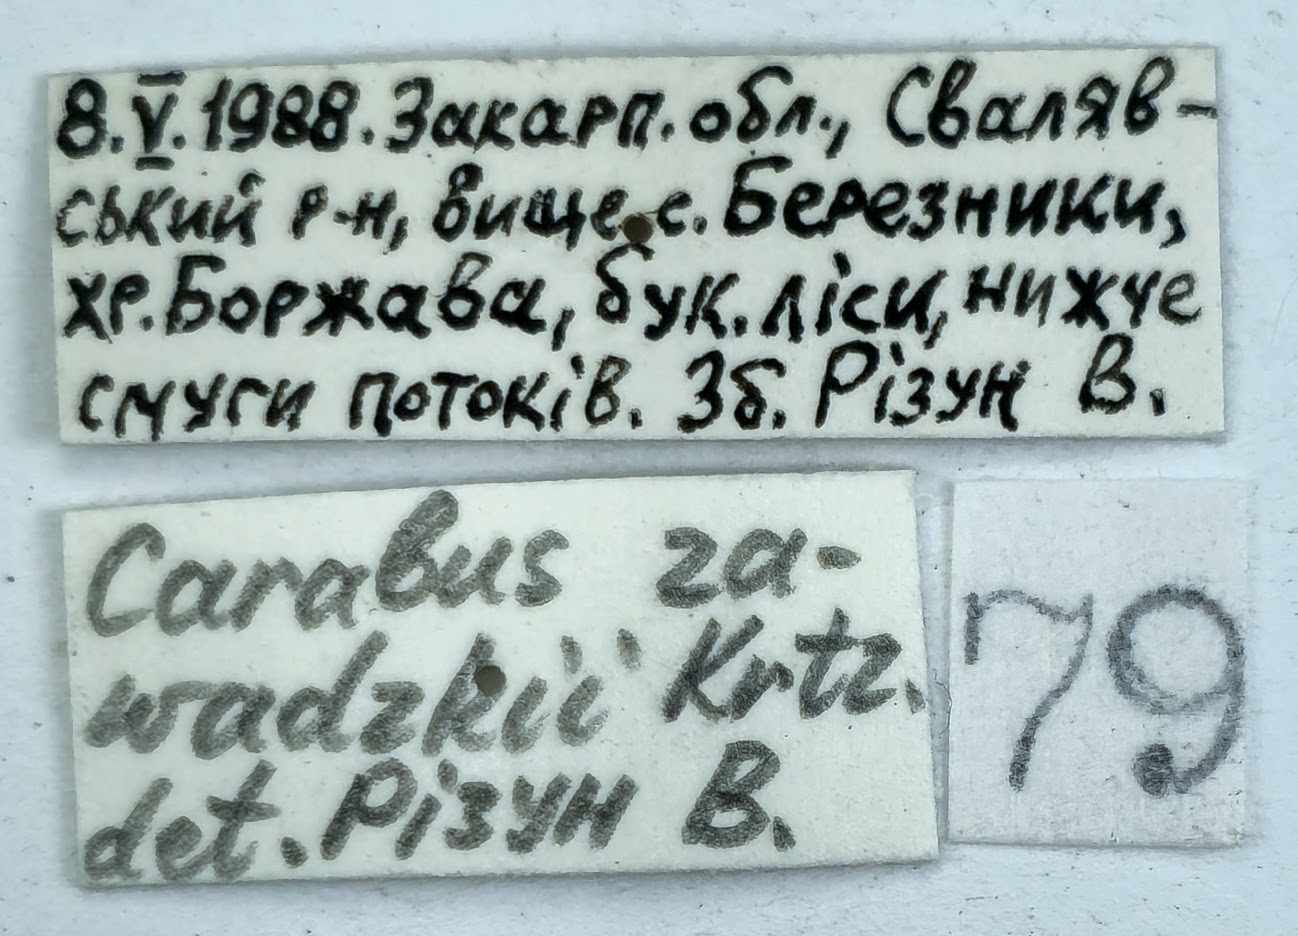 8.V.1988. Закарп. обл., Сваляв-
ський р-н, вище с. Березники,
хр. Боржава, бук. ліси, нижче
смуги потоків. Зб. Різун В.
Carabus za-
wadzkii Krtz.
det. Різун В.
79